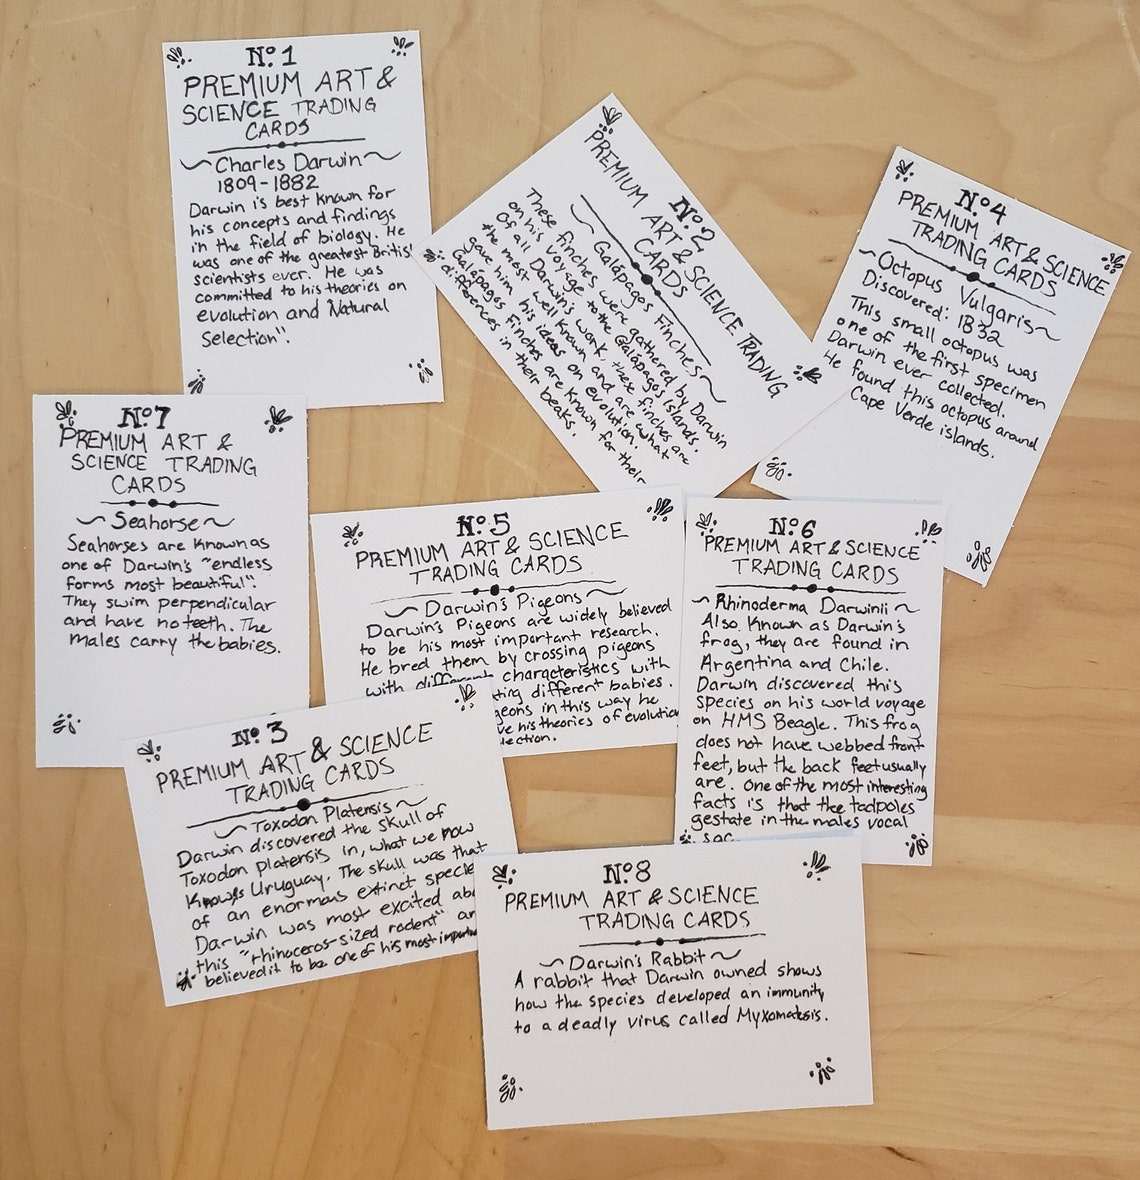 Nº.1
PREMIUM ART &
SCIENCE TRADING
CARDS
Charles Darwin
1809-1882
Darwin is best known for
his concepts and findings
in the field of biology. He
was one of the greatest Britis
scientists ever. He was
committed to his theories on
evolution and "Natural
Selection".
Nº.2
PREMIUM ART & SCIENCE TRADING
CARDS
Galápagos Finches
These finches were gathered by Darwin
on his voyage to the Galápagos islands.
Of all Darwin's work, these finches are
the most well known and are what
gave him his ideas on evolution.
Galápagos finches are known for their
differences in their beaks.
Nº.4
PREMIUM ART & SCIENCE
TRADING CARDS
Octopus Vulgaris
Discovered: 1832
This small octopus was
one of the first specimen
Darwin ever collected.
He found this octopus around
Cape Verde islands.
Nº.7
PREMIUM ART &
SCIENCE TRADING
CARDS
Seahorse
Seahorses are known as
one of Darwin's "endless
forms most beautiful".
They swim perpendicular
and have no teeth. The
males carry the babies.
Nº.5
PREMIUM ART & SCIENCE
TRADING CARDS
Darwin's Pigeons
Darwin's Pigeons are widely believed
to be his most important research.
He bred them by crossing pigeons
with different characteristics with
ting different babies.
geons in this way he
ve his theories of evolution
lection.
Nº.6
PREMIUM ART & SCIENCE
TRADING CARDS
Rhinoderma Darwinii
Also known as Darwin's
frog, they are found in
Argentina and Chile.
Darwin discovered this
species on his world voyage
on HMS Beagle. This frog
does not have webbed front
feet, but the back feet usually
are. One of the most interesting
facts is that the tadpoles
gestate in the males vocal
sac.
Nº.3
PREMIUM ART & SCIENCE
TRADING CARDS
Toxodon Platensis
Darwin discovered the skull of
Toxodon platensis in, what we now
Know is Uruguay. The skull was that
of an enormous extinct specie
Darwin was most excited abo
this "rhinoceros-sized rodent" an
believed it to be one of his most importan
Nº.8
PREMIUM ART & SCIENCE
TRADING CARDS
Darwin's Rabbit
A rabbit that Darwin owned shows
how the species developed an immunity
to a deadly virus called Myxomatosis.